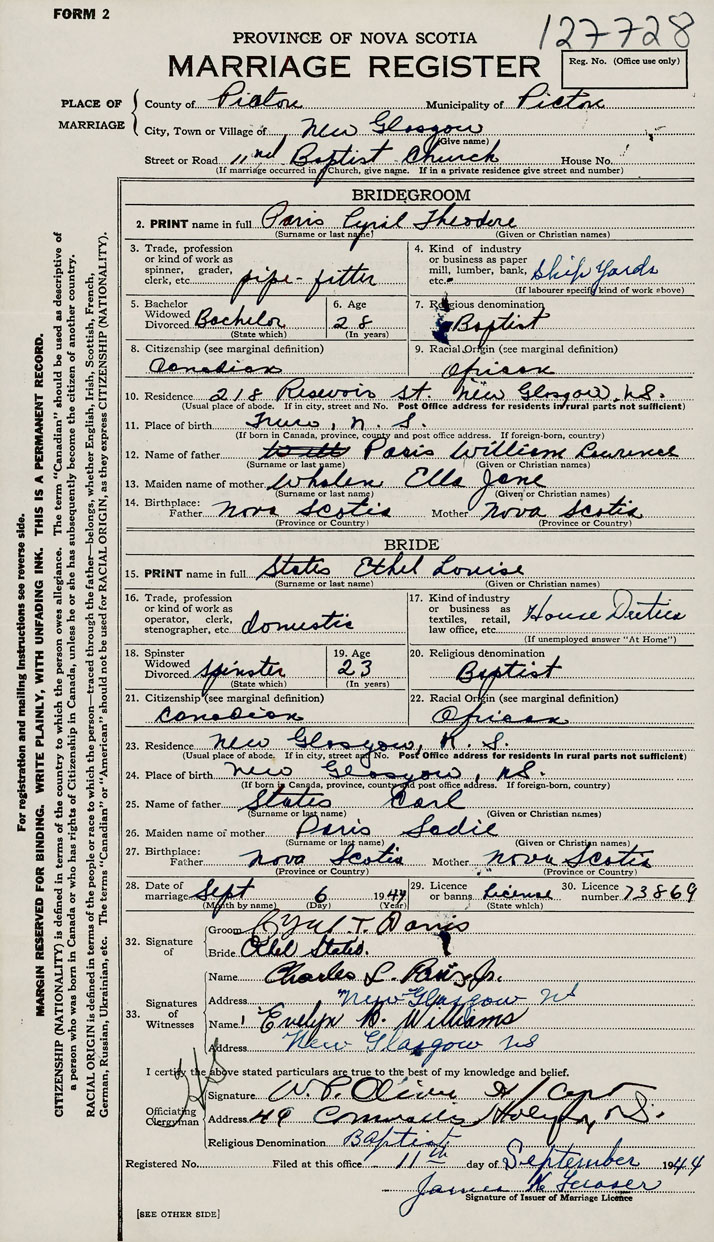 FORM 2
127728
PROVINCE OF NOVA SCOTIA
MARRIAGE REGISTER
Reg. No. (Office use only)
PLACE OF MARRIAGE
County of Pictou Municipality of Pictou
City, Town or Village of New Glasgow
(Give name)
Street or Road 11nd Baptist Church House No.
(If marriage occurred in Church, give name. If in a private residence give street and number)
BRIDEGROOM
2. PRINT name in full Paris Cyril Theodore
(Surname or last name) (Given or Christian names)
3. Trade, profession or kind of work as spinner, grader, clerk, etc. pipe-fitter
4. Kind of industry or business as paper mill, lumber, bank, etc. Ship Yards
(If labourer specify kind of work above)
5. Bachelor Widowed Divorced Bachelor
(State which)
6. Age 28
(In years)
7. Religious denomination
Baptist
8. Citizenship (see marginal definition)
Canadian
9. Racial Origin (see marginal definition)
African
10. Residence 218 Resevoir St. New Glasgow, N.S.
(Usual place of abode. If in city, street and No. Post Office address for residents in rural parts not sufficient)
11. Place of birth Truro, N.S.
(If born in Canada, province, county and post office address. If foreign-born, country)
12. Name of father Paris William Lawrence
(Surname or last name) (Given or Christian names)
13. Maiden name of mother Whalen Ella Jane
(Surname or last name) (Given or Christian names)
14. Birthplace: Father Nova Scotia Mother Nova Scotia
(Province or Country) (Province or Country)
BRIDE
15. PRINT name in full States Ethel Louise
(Surname or last name) (Given or Christian names)
16. Trade, profession or kind of work as operator, clerk, stenographer, etc. domestic
17. Kind of industry or business as textiles, retail, law office, etc. House Duties
(If unemployed answer "At Home")
18. Spinster Widowed Divorced Spinster
(State which)
19. Age 23
(In years)
20. Religious denomination
Baptist
21. Citizenship (see marginal definition)
Canadian
22. Racial Origin (see marginal definition)
African
23. Residence New Glasgow, N.S.
(Usual place of abode. If in city, street and No. Post Office address for residents in rural parts not sufficient)
24. Place of birth New Glasgow, N.S.
(If born in Canada, province, county and post office address. If foreign-born, country)
25. Name of father States Carl
(Surname or last name) (Given or Christian names)
26. Maiden name of mother Paris Sadie
(Surname or last name) (Given or Christian names)
27. Birthplace: Father Nova Scotia Mother Nova Scotia
(Province or Country) (Province or Country)
28. Date of marriage Sept 6 1944
(Month by name) (Day) (Year)
29. Licence or banns License
(State which)
30. Licence number 73869
32. Signature of
Groom Cyril T. Paris
Bride Ethel States.
33. Signatures of Witnesses
Name Charles L. Paris Jr.
Address New Glasgow NS
Name Evelyn B. Williams
Address New Glasgow NS
I certify the above stated particulars are true to the best of my knowledge and belief.
Officiating Clergyman
Signature W. P. Oliver H/Capt
Address 49 Cornwallis N.S.
Religious Denomination Baptist
Registered No. Filed at this office 11th day of September 1944
James
Signature of Issuer of Marriage Licence
[SEE OTHER SIDE]
For registration and mailing instructions see reverse side.
MARGIN RESERVED FOR BINDING. WRITE PLAINLY, WITH UNFADING INK. THIS IS A PERMANENT RECORD.
CITIZENSHIP (NATIONALITY) is defined in terms of the country to which the person owes allegiance. The term "Canadian" should be used as descriptive of
a person who was born in Canada or who has rights of Citizenship in Canada, unless he or she has subsequently become the citizen of another country.
RACIAL ORIGIN is defined in terms of the people or race to which the person—traced through the father—belongs, whether English, Irish, Scottish, French,
German, Russian, Ukrainian, etc. The terms "Canadian" or "American" should not be used for RACIAL ORIGIN, as they express CITIZENSHIP (NATIONALITY).